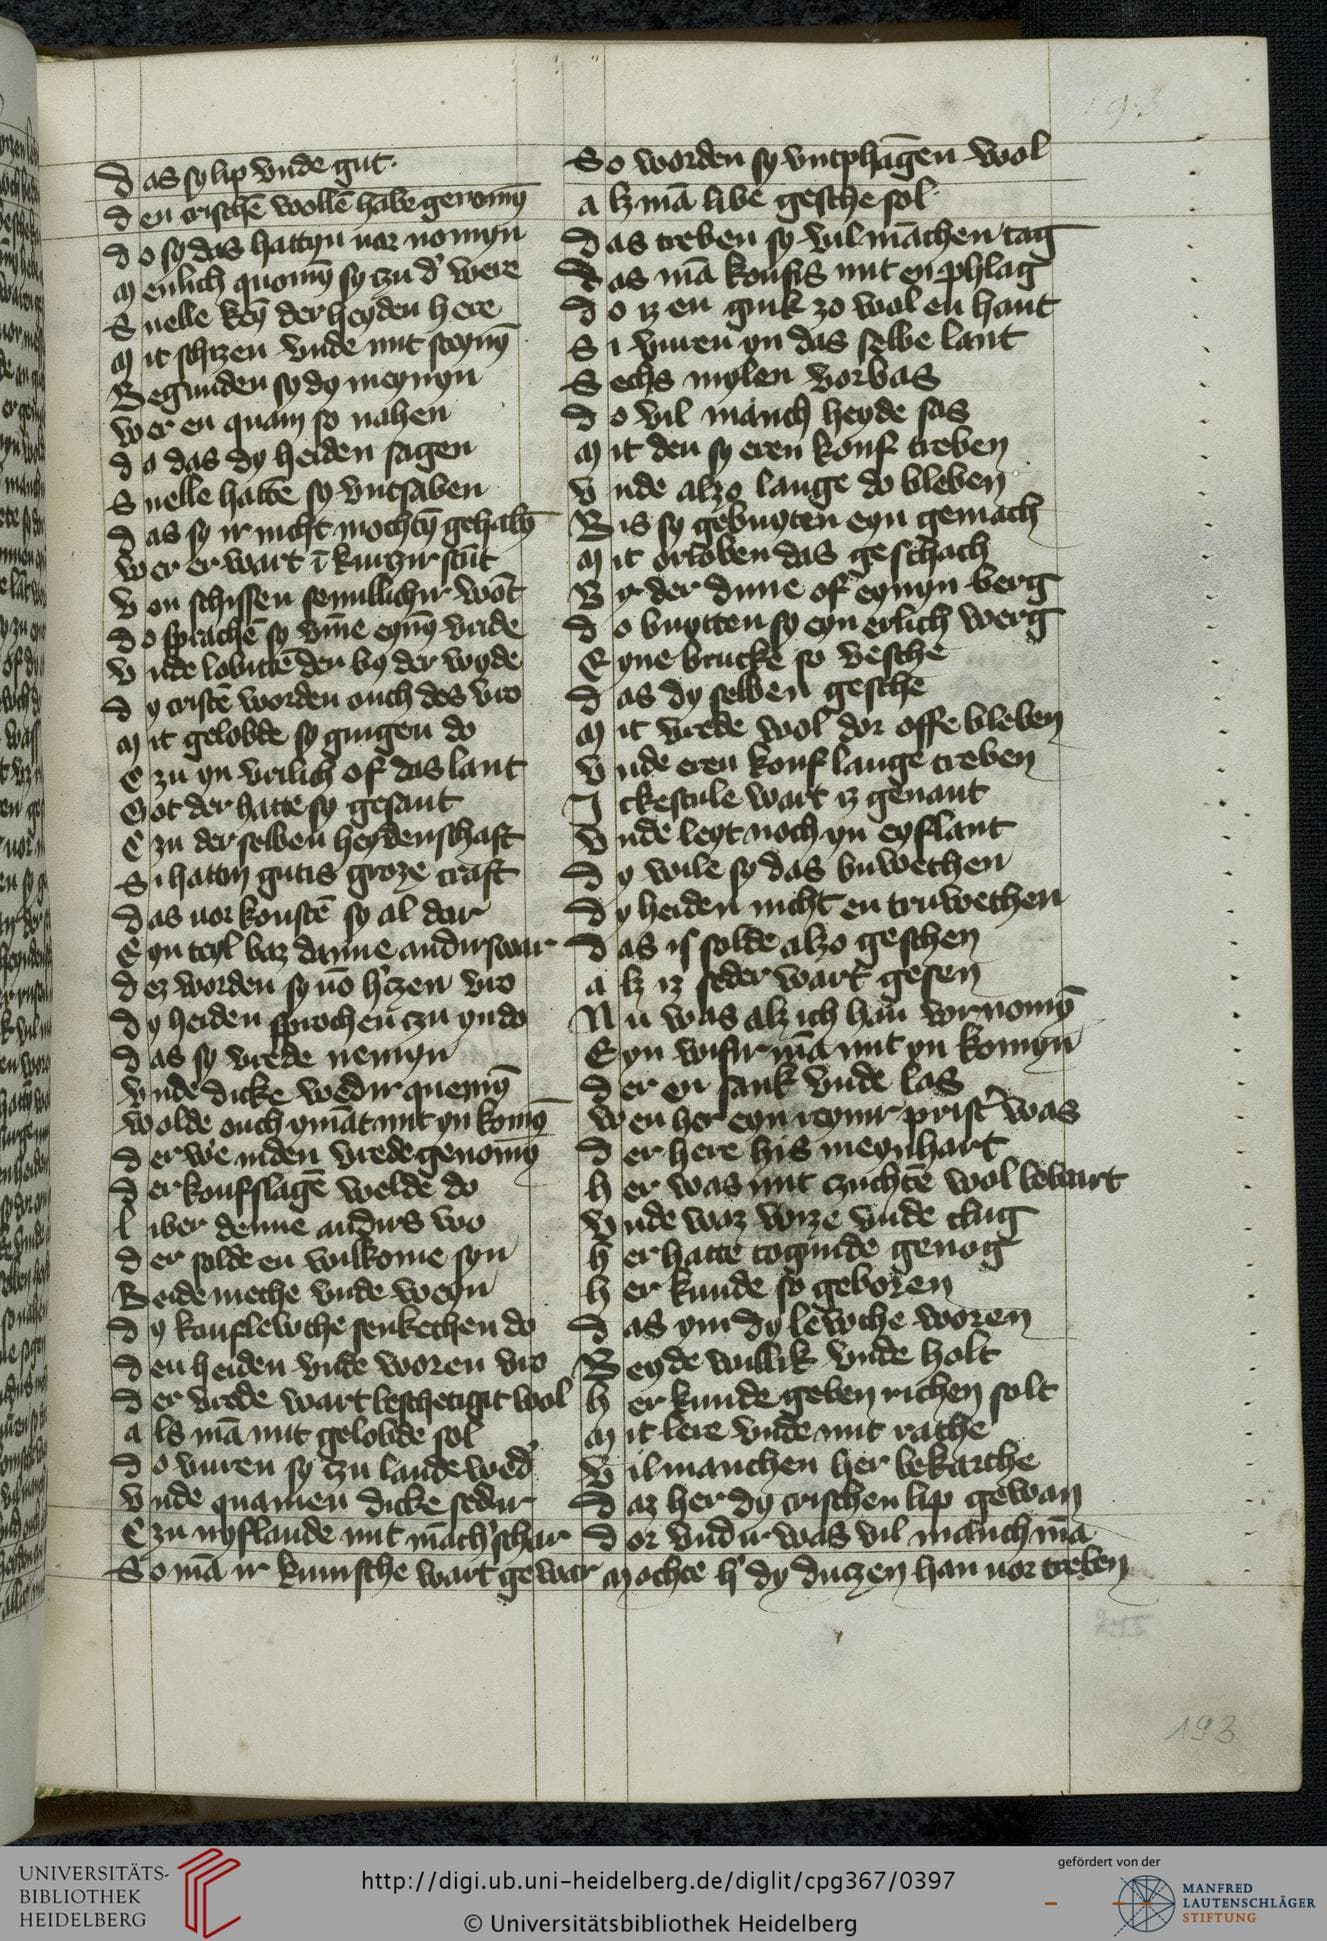 Das sy lip vnde gut
den cristhē wollē habe genomȳ
do sy das hattyn uor nomyn
Menlich quomȳ sy czu d' were
Snelle keȳ der heyden here
Mit schizen vnde mit steynȳ
Begunden sy dy meynyn
wer en quam so nahen
do das dy heiden sagen
Snelle hattē sy vntsaben
das sy ir nicht mochtȳ gehabȳ
wer er wart ī kurczir stūt
von schissen semillichir wōt
do sprachē sy vm̄e eynȳ vride
vnde lobittē den by der wyde
dy cristē worden ouch des vro
Mit gelobde sy gingen do
Czu yn vrilich of das lant
Got der hatte sy gesant
Czu der selben heydenschaft
Si hattin gutis groze craft
das uor kouftē sy al dar
Eyn teyl baz danne andirswar
dez worden sy uō h'czen vro
dy heiden sprochen czu yn do
das sy vrede nemyn
vnde dicke wedir quemȳ
wolde ouch ymāt mit yn komȳ
der we' in den vrede genomȳ
der koufslagē welde do
liber denne andirs wo
der solde en wilkome syn
Beide methe vnde weyn
dy kouflewthe schenkethen do
den heiden vnde woren vro
der vrede wart beschetigit wol
als mā mit gelobde sol
do vuren sy czu lande wed'
vnde quamen dicke sedir
Czu nyflande mit māch' schar
So mā ir kumsthe wart gewar
So worden sy vntphāgen wol
alz mā libe gesthe sol
das treben sy vil māchen tag
das mā koufis mit en phlag
do iz en gink zo wol en hant
Si vuren yn das selbe lant
Sechs mylen vorbas
do vil manch heyde sas
Mit den sy eren kouf treben
vnde alzo lange do bleben
Bis sy gebuyten eyn gemach
Mit orloben das geschach
By der dune of eynyn berg
do buytten sy eyn erlich werg
Eyne brucke so vesthe
das dy selben gesthe
Mit vrede wol dor offe bleben
vnde eren kouf lange treben
Ickescule wart iz genant
vnde leyt noch yn eyflant
dy wile sy das buwethen
dy heiden nicht en truwethen
das is solde alzo geschen
alz iz seder wart gesen
Nu was alz ich han vornomȳ
Eyn wisir mā mit yn komyn
der en sank vnde las
wen her eyn reynir prist' was
der here his meynhart
her was mit zuchtē wol bewart
vnde waz wize vnde clug
her hatte toginde genog
her kunde so geboren
das ym dy lewthe woren
Beyde willik vnde holt
her kunde geben richen solt
Mit lere vnde mit rathe
vil manchen her bekarthe
daz her dy cristhen lip gewan
dor vndir was vil manch mā
Mochte h' dy duczen han uor treben
193
UNIVERSITÄTS-
BIBLIOTHEK
HEIDELBERG
http://digi.ub.uni-heidelberg.de/diglit/cpg367/0397
© Universitätsbibliothek Heidelberg
gefördert von der
MANFRED
LAUTENSCHLÄGER
STIFTUNG